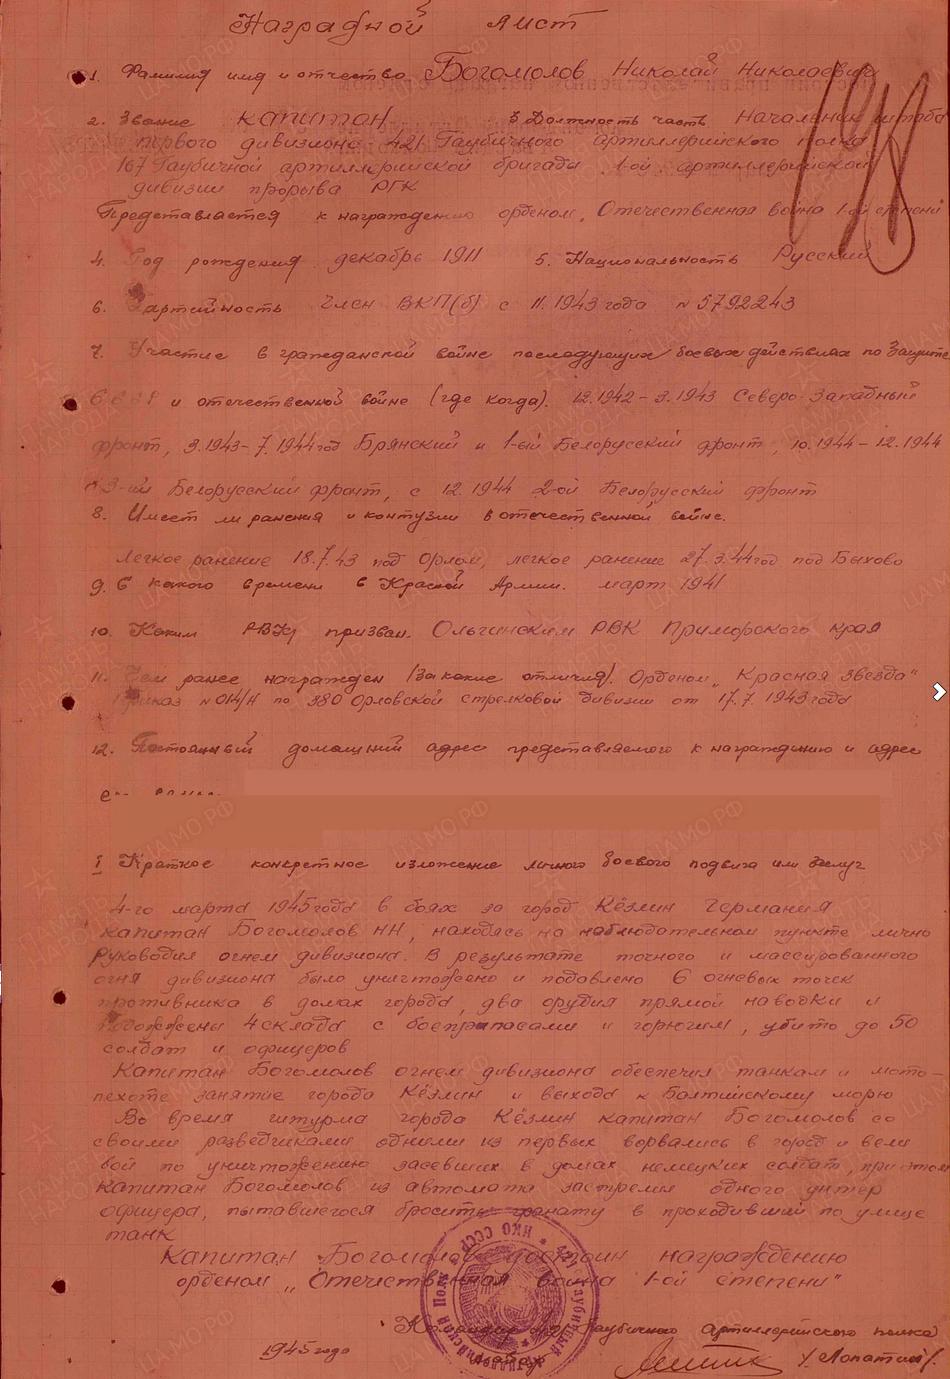 Наградной лист
1. Фамилия имя и отчество Богомолов Николай Николаевич
2. Звание капитан 3 Должность часть Начальник штаба
первого дивизиона 421 Гаубичного артиллерийского полка
167 Гаубичной артиллерийской бригады 1-ой артиллерийской
дивизии прорыва РГК
Представляется к награждению орденом „Отечественная война 1-ой степени
4. Год рождения декабрь 1911 5. Национальность Русский
6. Партийность член ВКП(б) с 11.1943 года № 5792243
7. Участие в гражданской войне последующих боевых действиях по защите
СССР и отечественной войне (где когда). 12.1942 - 3.1943 Северо-Западный
фронт, 3.1943 - 7.1944 год Брянский и 1-ый Белорусский фронт, 10.1944 - 12.1944
3-ий Белорусский фронт, с 12.1944 2-ой Белорусский фронт
8. Имеет ли ранения и контузии в отечественной войне.
Легкое ранение 18.7.43 под Орлом, легкое ранение 27.3.44 год под Быхово
9. С какого времени в Красной Армии. март 1941
10. Каким РВК призван. Ольгинским РВК Приморского края
11. Чем ранее награжден (За какие отличия). Орденом „Красная Звезда“
Приказ № 014/Н по 380 Орловской стрелковой дивизии от 17.7.1943 года
12. Постоянный домашний адрес представляемого к награждению и адрес
I Краткое конкретное изложение личного боевого подвига или заслуг
4-го марта 1945 года в боях за город Кёзлин Германия
капитан Богомолов НН, находясь на наблюдательном пункте лично
руководил огнем дивизиона. В результате точного и массированного
огня дивизиона было уничтожено и подавлено 6 огневых точек
противника в домах города, два орудия прямой наводки и
подожжены 4 склада с боеприпасами и горючим, убито до 50
солдат и офицеров
Капитан Богомолов огнем дивизиона обеспечил танкам и мото-
пехоте занятие города Кёзлин и выхода к Балтийскому морю
Во время штурма города Кёзлин капитан Богомолов со
своими разведчиками одними из первых ворвались в город и вели
бой по уничтожению засевших в домах немецких солдат, при этом
капитан Богомолов из автомата застрелил одного унтер
офицера, пытавшегося бросить гранату в проходивший по улице
танк
Капитан Богомолов достоин награждению
орденом „Отечественная война 1-ой степени“
Командир 421 Гаубичного Артиллерийского полка
1945 года /Лопатин/